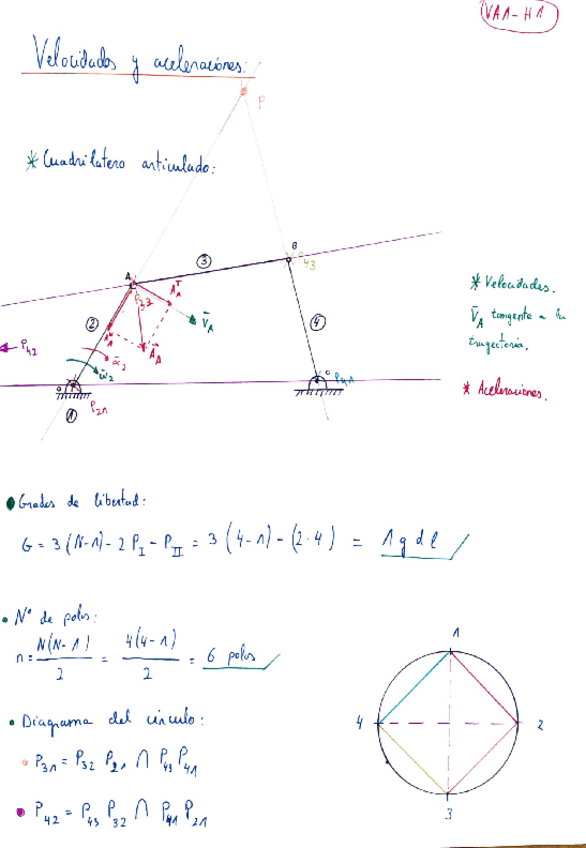 VA1-H1
Velocidades y aceleraciones:
P
* Cuadrilatero articulado:
B
P43
3
A
P32
A_A^T
V̄_A
2
4
Ā_A
P42
ᾱ2
ω̄2
O
P21
1
O
P41
* Velocidades.
V̄_A tangente a la
trayectoria.
* Aceleraciones.
Grados de libertad:
G = 3(N-1) - 2P_I - P_II = 3(4-1) - (2·4) = 1 g d l
Nº de polos:
n = N(N-1)/2 = 4(4-1)/2 = 6 polos
Diagrama del circulo:
P31 = P32 P21 ∩ P43 P41
P42 = P43 P32 ∩ P41 P21
1
4
2
3